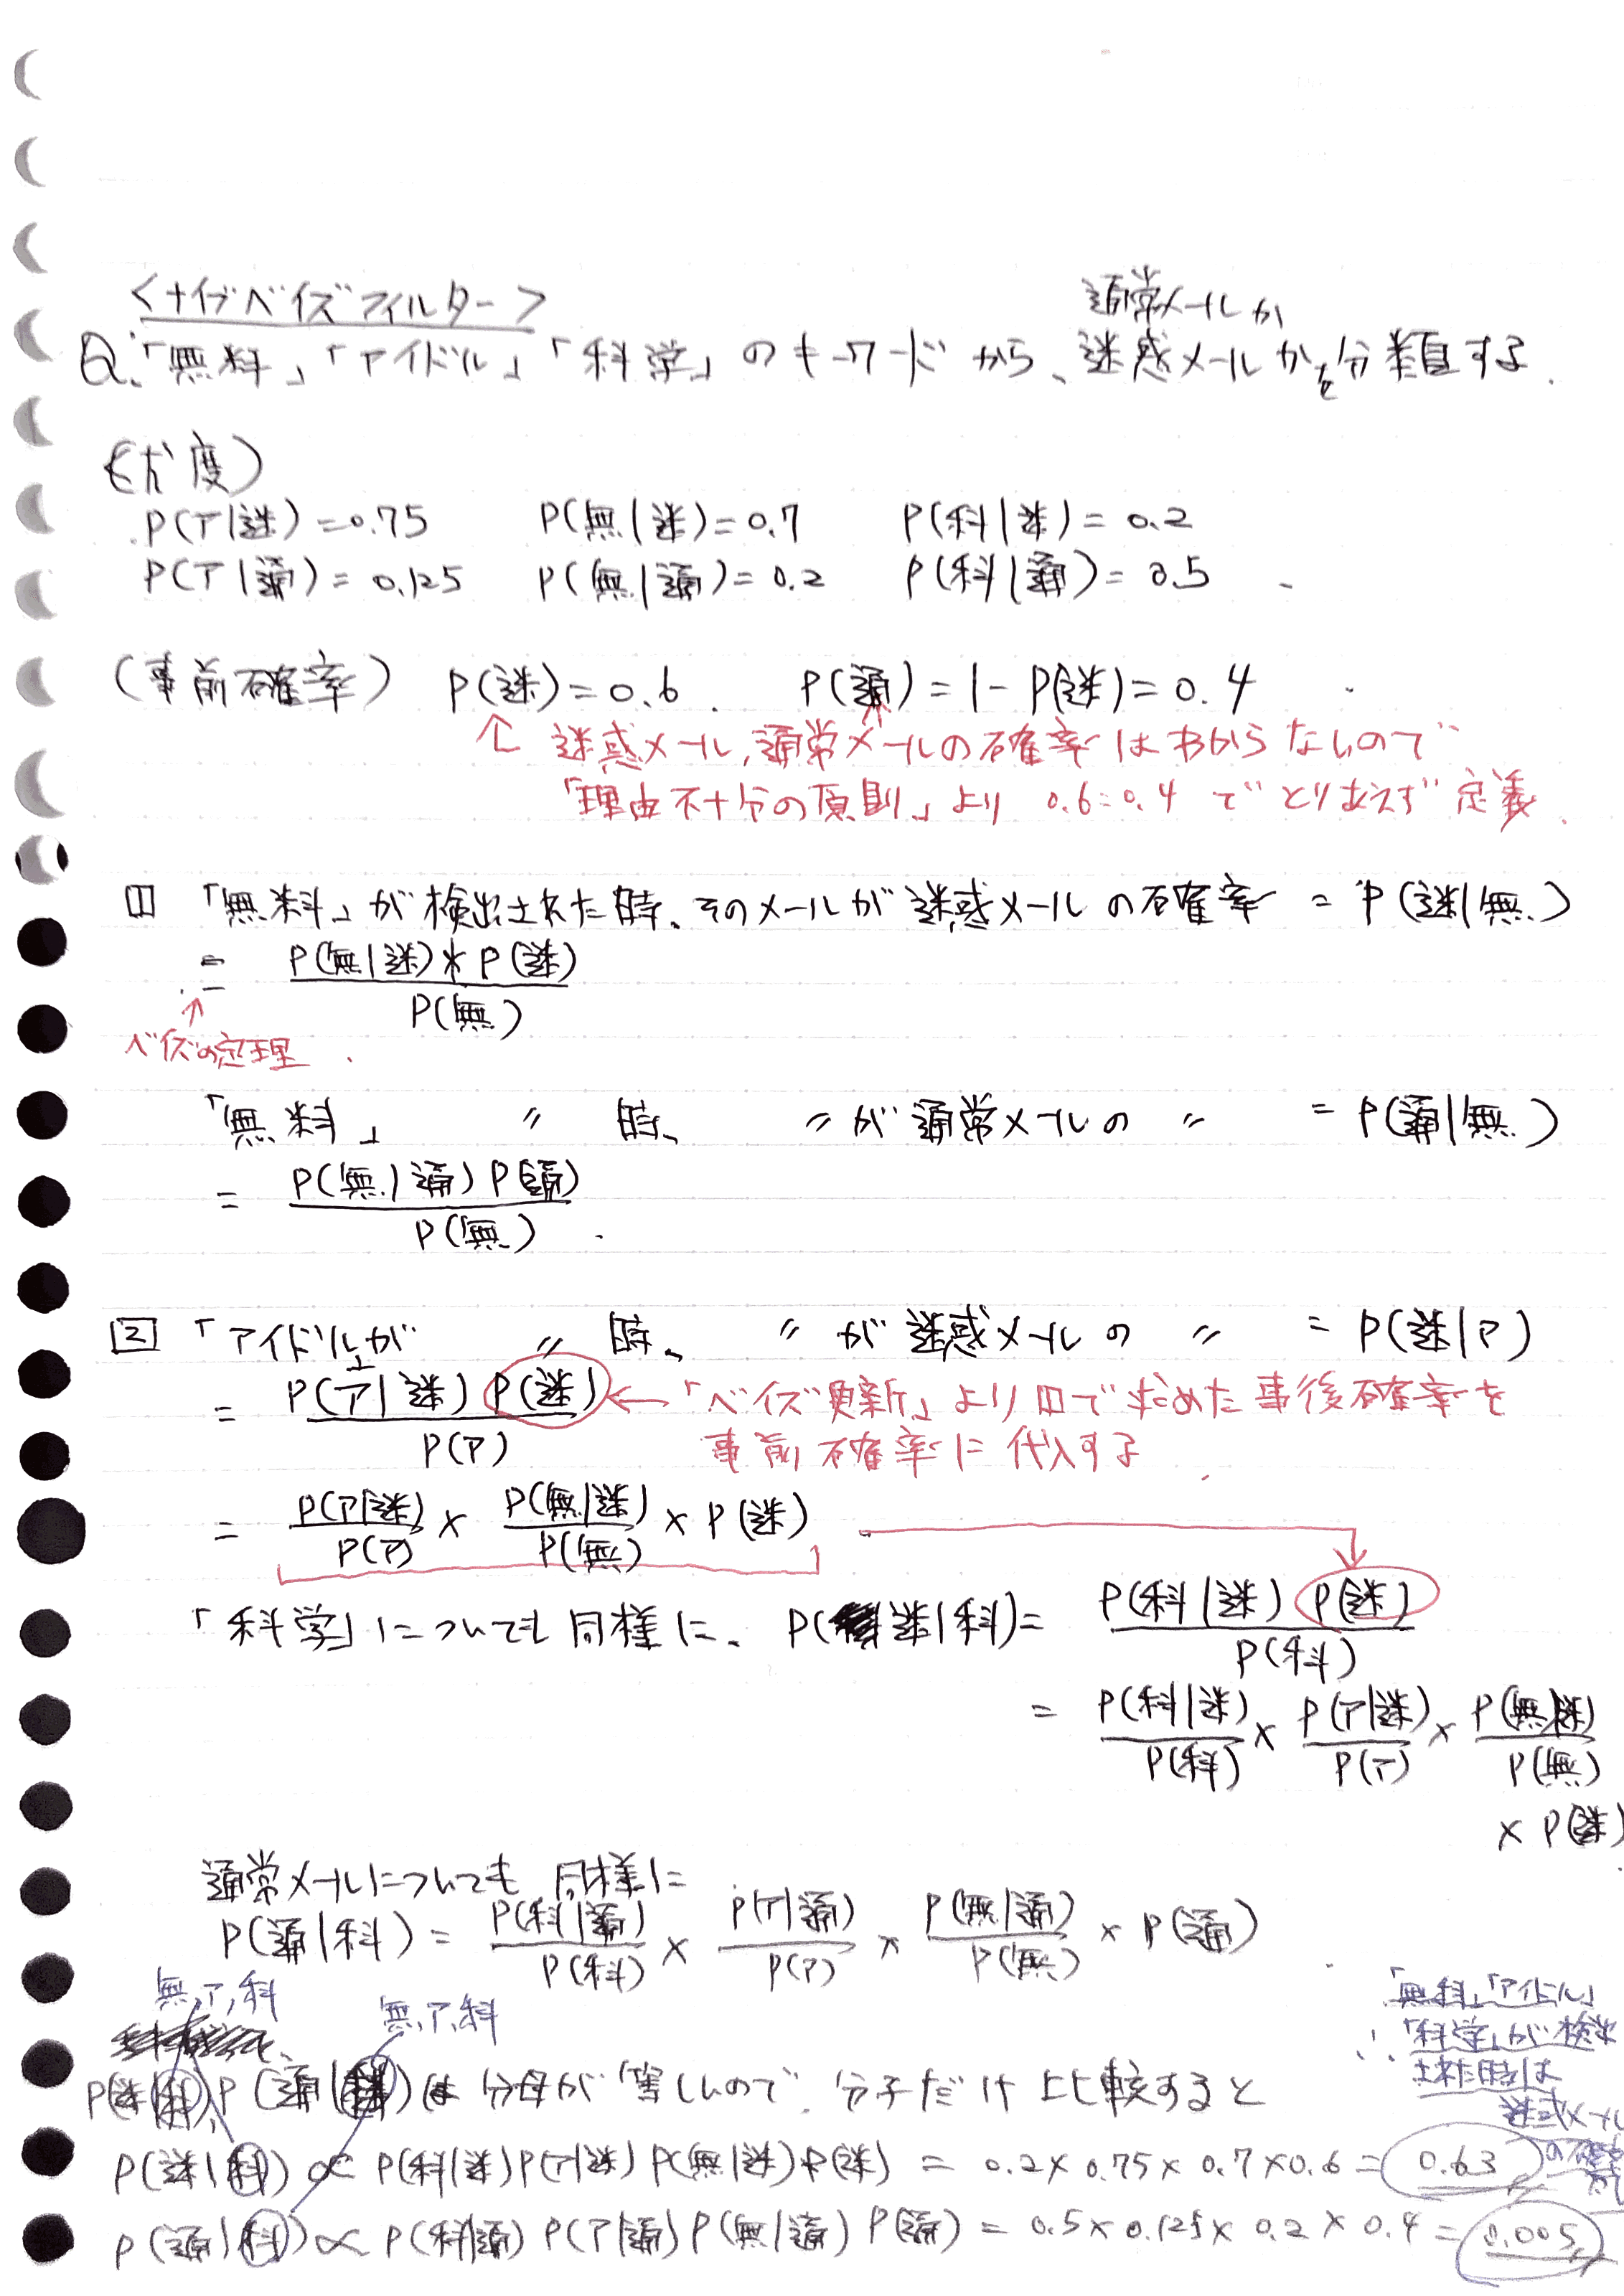 <ナイブベイズフィルター>
通常メールか
Q.「無料」「アイドル」「科学」のキーワードから、迷惑メールかを分類する.
(尤度)
P(ア|迷)=0.75 P(無|迷)=0.7 P(科|迷)=0.2
P(ア|通)=0.125 P(無|通)=0.2 P(科|通)=0.5
(事前確率) P(迷)=0.6. P(通)=1-P(迷)=0.4
↑ 迷惑メール,通常メールの確率はわからないので
「理由不十分の原則」より 0.6:0.4 でとりあえず定義.
1 「無料」が検出された時、そのメールが迷惑メールの確率 = P(迷|無)
= P(無|迷)*P(迷) / P(無)
↑
ベイズの定理.
「無料」 〃 時、 〃が通常メールの 〃 = P(通|無)
= P(無|通)P(通) / P(無)
2 「アイドルが 〃 時、 〃が迷惑メールの 〃 = P(迷|ア)
= P(ア|迷)P(迷) / P(ア) ←「ベイズ更新」より1で求めた事後確率を
事前確率に代入する
= P(ア|迷)/P(ア) × P(無|迷)/P(無) × P(迷)
「科学」についても同様に、P(迷|科)= P(科|迷)P(迷) / P(科)
= P(科|迷)/P(科) × P(ア|迷)/P(ア) × P(無|迷)/P(無)
× P(迷)
通常メールについても同様に
P(通|科) = P(科|通)/P(科) × P(ア|通)/P(ア) × P(無|通)/P(無) × P(通)
無,ア,科
無,ア,科
P(迷|科),P(通|科)は分母が等しいので、分子だけ比較すると
P(迷|科) ∝ P(科|迷)P(ア|迷)P(無|迷)P(迷) = 0.2×0.75×0.7×0.6=0.63
P(通|科) ∝ P(科|通)P(ア|通)P(無|通)P(通) = 0.5×0.125×0.2×0.4=0.005
「無料」「アイドル」
∴「科学」が検出
された時は
迷惑メール
の確率